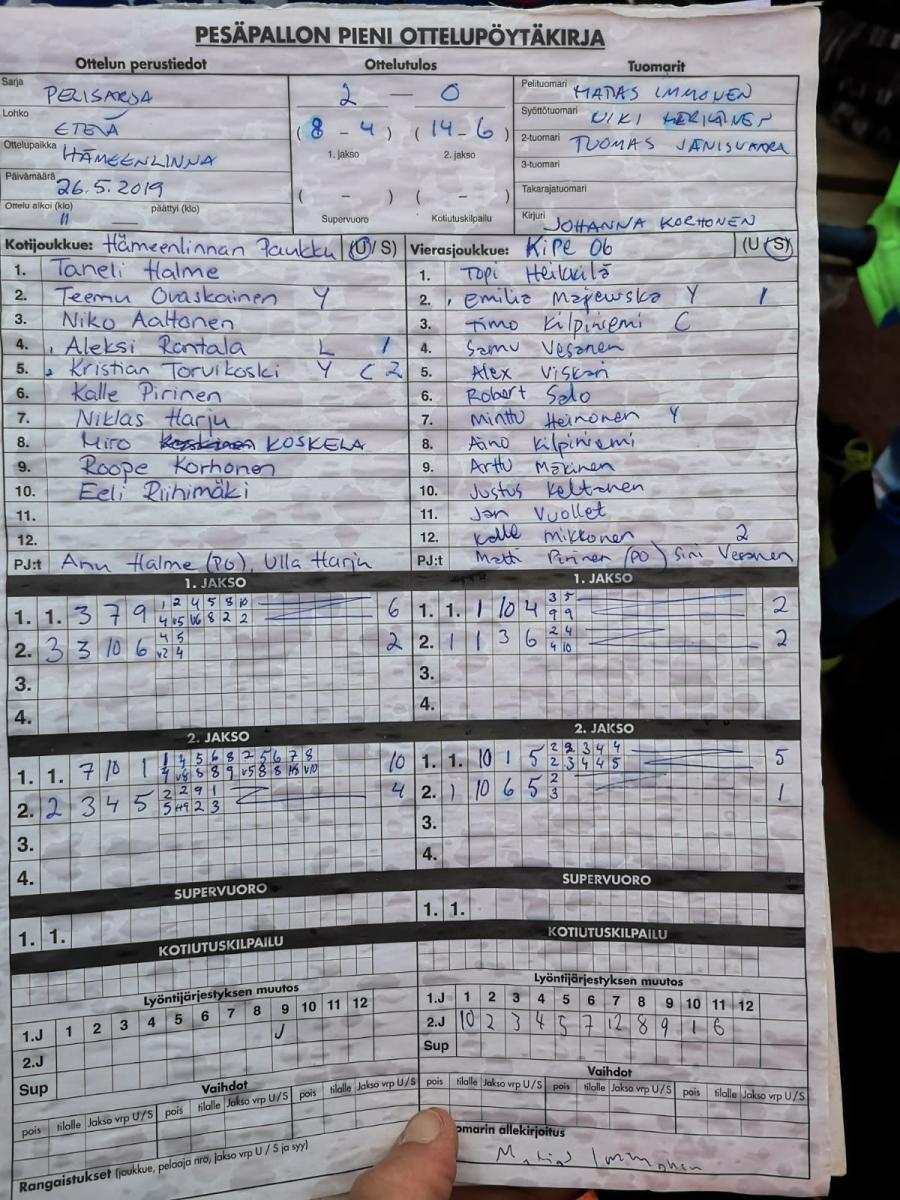 PESÄPALLON PIENI OTTELUPÖYTÄKIRJA
Ottelun perustiedot
Sarja PELISARJA
Lohko ETELÄ
Ottelupaikka HÄMEENLINNA
Päivämäärä 26.5.2019
Ottelu alkoi (klo) 11 päättyi (klo)
Ottelutulos
2 – 0
( 8 - 4 ) ( 14 - 6 )
1. jakso 2. jakso
( - ) ( - )
Supervuoro Kotiutuskilpailu
Tuomarit
Pelituomari IMMONEN
Syöttötuomari
2-tuomari TUOMAS
3-tuomari
Takarajatuomari
Kirjuri JOHANNA KORHONEN
Kotijoukkue: Hämeenlinnan Paukku (U/S)
1. Taneli Halme
2. Teemu Ovaskainen Y
3. Niko Aaltonen
4. Aleksi Rantala L 1
5. Kristian Torvikoski Y C 2
6. Kalle Pirinen
7. Niklas Harju
8. Miro KOSKELA
9. Roope Korhonen
10. Eeli Riihimäki
11.
12.
PJ:t Anu Halme (PO), Ulla Harju
Vierasjoukkue: Kipe 06 (U/S)
1. Topi Heikkilä
2. Emilia Majewska Y 1
3. Timo Kilpiniemi C
4. Samu Vesanen
5. Alex
6. Robert Salo
7. Minttu Heinonen Y
8. Aino Kilpiniemi
9. Arttu Mäkinen
10. Justus Keltanen
11. Jan Vuollet
12. Kalle Mikkonen 2
PJ:t Matti Pirinen (PO) Sini Vesanen
1. JAKSO
1. 1. 3 7 9 6
2. 3 3 10 6 2
3.
4.
1. JAKSO
1. 1. 1 10 4 2
2. 1 1 3 6 2
3.
4.
2. JAKSO
1. 1. 7 10 1 10
2. 2 3 4 5 4
3.
4.
2. JAKSO
1. 1. 10 1 5 5
2. 1 10 6 5 1
3.
4.
SUPERVUORO
1. 1.
KOTIUTUSKILPAILU
SUPERVUORO
1. 1.
KOTIUTUSKILPAILU
Lyöntijärjestyksen muutos
1.J 1 2 3 4 5 6 7 8 9 10 11 12
2.J
Sup
Lyöntijärjestyksen muutos
1.J 1 2 3 4 5 6 7 8 9 10 11 12
2.J 10 2 3 4 5 7 12 8 9 1 6
Sup
Vaihdot
pois tilalle Jakso vrp U/S pois tilalle Jakso vrp U/S pois tilalle Jakso vrp U/S
Vaihdot
pois tilalle Jakso vrp U/S pois tilalle Jakso vrp U/S pois tilalle Jakso vrp U/S
Rangaistukset (joukkue, pelaaja nro, jakso vrp U / S ja syy)
omarin allekirjoitus